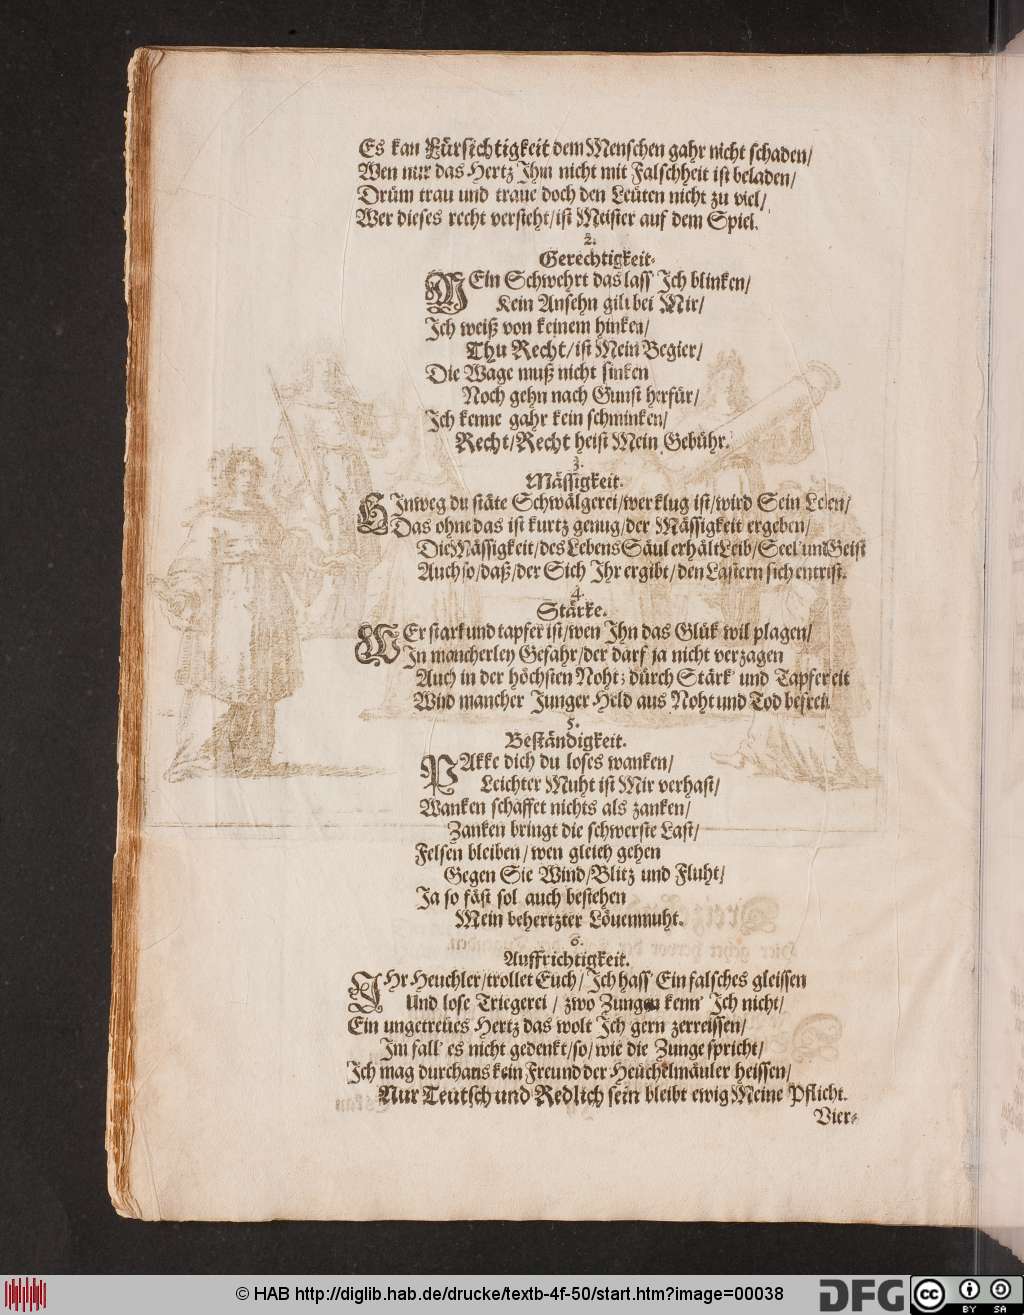 Es kan Fürsichtigkeit dem Menschen gahr nicht schaden/
Wen nur das Hertz Ihm nicht mit Falschheit ist beladen/
Drüm trau und traue doch den Leüten nicht zu viel/
Wer dieses recht versteht/ist Meister auf dem Spiel.
2.
Gerechtigkeit.
MEin Schwehrt das lass' Ich blinken/
Kein Ansehn gilt bei Mir/
Ich weiß von keinem hinken/
Thu Recht/ist Mein Begier/
Die Wage muß nicht sinken
Noch gehn nach Gunst herfür/
Ich kenne gahr kein schminken/
Recht/Recht heist Mein Gebühr.
3.
Mässigkeit.
HInweg du stäte Schwälgerei/wer klug ist/wird Sein Leben/
Das ohne das ist kurtz genug/der Mässigkeit ergeben/
Die Mässigkeit/des Lebens Säul erhält Leib/Seel' und Geist
Auch so/daß/der Sich Ihr ergibt/den Lastern sich entrist.
4.
Stärke.
WEr stark und tapfer ist/wen Ihn das Glük wil plagen/
In mancherley Gefahr/der darf ja nicht verzagen
Auch in der höchsten Noht; dürch Stärk' und Tapferkeit
Wird mancher Junger Held aus Noht und Tod befreit.
5.
Beständigkeit.
PAkke dich du loses wanken/
Leichter Muht ist Mir verhast/
Wanken schaffet nichts als zanken/
Zanken bringt die schwerste Last/
Felsen bleiben/wen gleich gehen
Gegen Sie Wind/Blitz und Fluht/
Ja so fäst sol auch bestehen
Mein behertzter Löuenmuht.
6.
Auffrichtigkeit.
IHr Heuchler/trollet Euch/Ich hass' Ein falsches gleissen
Und lose Triegerei/zwo Zungen kenn' Ich nicht/
Ein ungetreües Hertz das wolt Ich gern zerreissen/
Im fall' es nicht gedenkt/so/wie die Zunge spricht/
Ich mag durchaus kein Freund der Heüchelmäuler heissen/
Nur Teutsch und Redlich sein bleibt ewig Meine Pflicht.
Vier-
© HAB http://diglib.hab.de/drucke/textb-4f-50/start.htm?image=00038
DFG
cc
BY SA